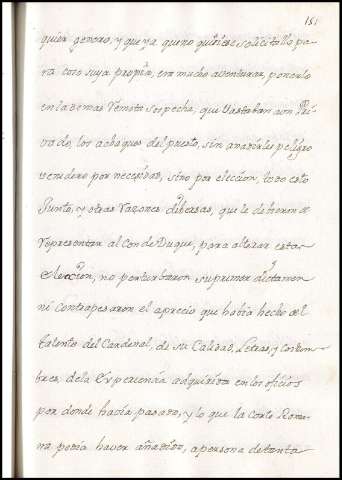 151
quier genero, y que ya que no quisiese solicitallo pa
ra cosa suya propria, era mucho aventurar, ponerlo
en la demas remota sospecha, que bastaban a un Pri
vado, los achaques del puesto, sin anadirles peligro
venidero por necesidad, sino por eleccion, todo esto
Junto, y otras razones dibersas, que le debieron de
representar al Conde Duque, para alterar esta
eleccion, no perturbaron su primer dictamen
ni contrapesaron el aprecio que habia hecho del
talento del Cardenal, de su Calidad, Letras, y Costum
bres, de la Experiencia adquirida en los oficios
por donde havia pasado, y lo que la Corte Roma
na podia haver añadido, a persona de tanta